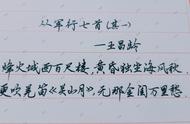 从军行七首(其一)
—王昌龄
烽火城西百尺楼,黄昏独坐海风秋
更吹羌笛《关山月》,无那金闺万里愁